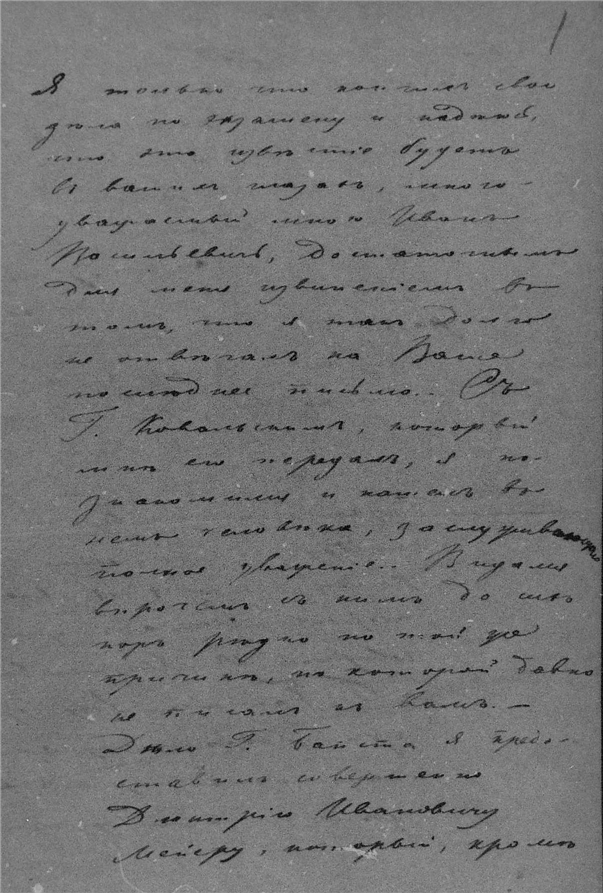 1
Я только что кончилъ свои
дѣла по экзамену и надѣюсь,
что это извѣстіе будетъ
въ вашихъ глазахъ, много-
уважаемый мною Иванъ
Васильевичъ, достаточнымъ
для меня извиненіемъ въ
томъ, что я такъ долго
не отвѣчалъ на Ваше
послѣднее письмо. Съ
Г. Ковальскимъ, который
мнѣ его передалъ, я по-
знакомился и нашелъ въ
немъ человѣка, заслуживающаго
полное уваженіе. Видался
впрочемъ съ нимъ до сихъ
поръ рѣдко по той же
причинѣ, по которой давно
не писалъ къ вамъ. —
Дѣло Г. я предо-
ставилъ совершенно
Дмитрію Ивановичу
Мейеру, который, кромѣ